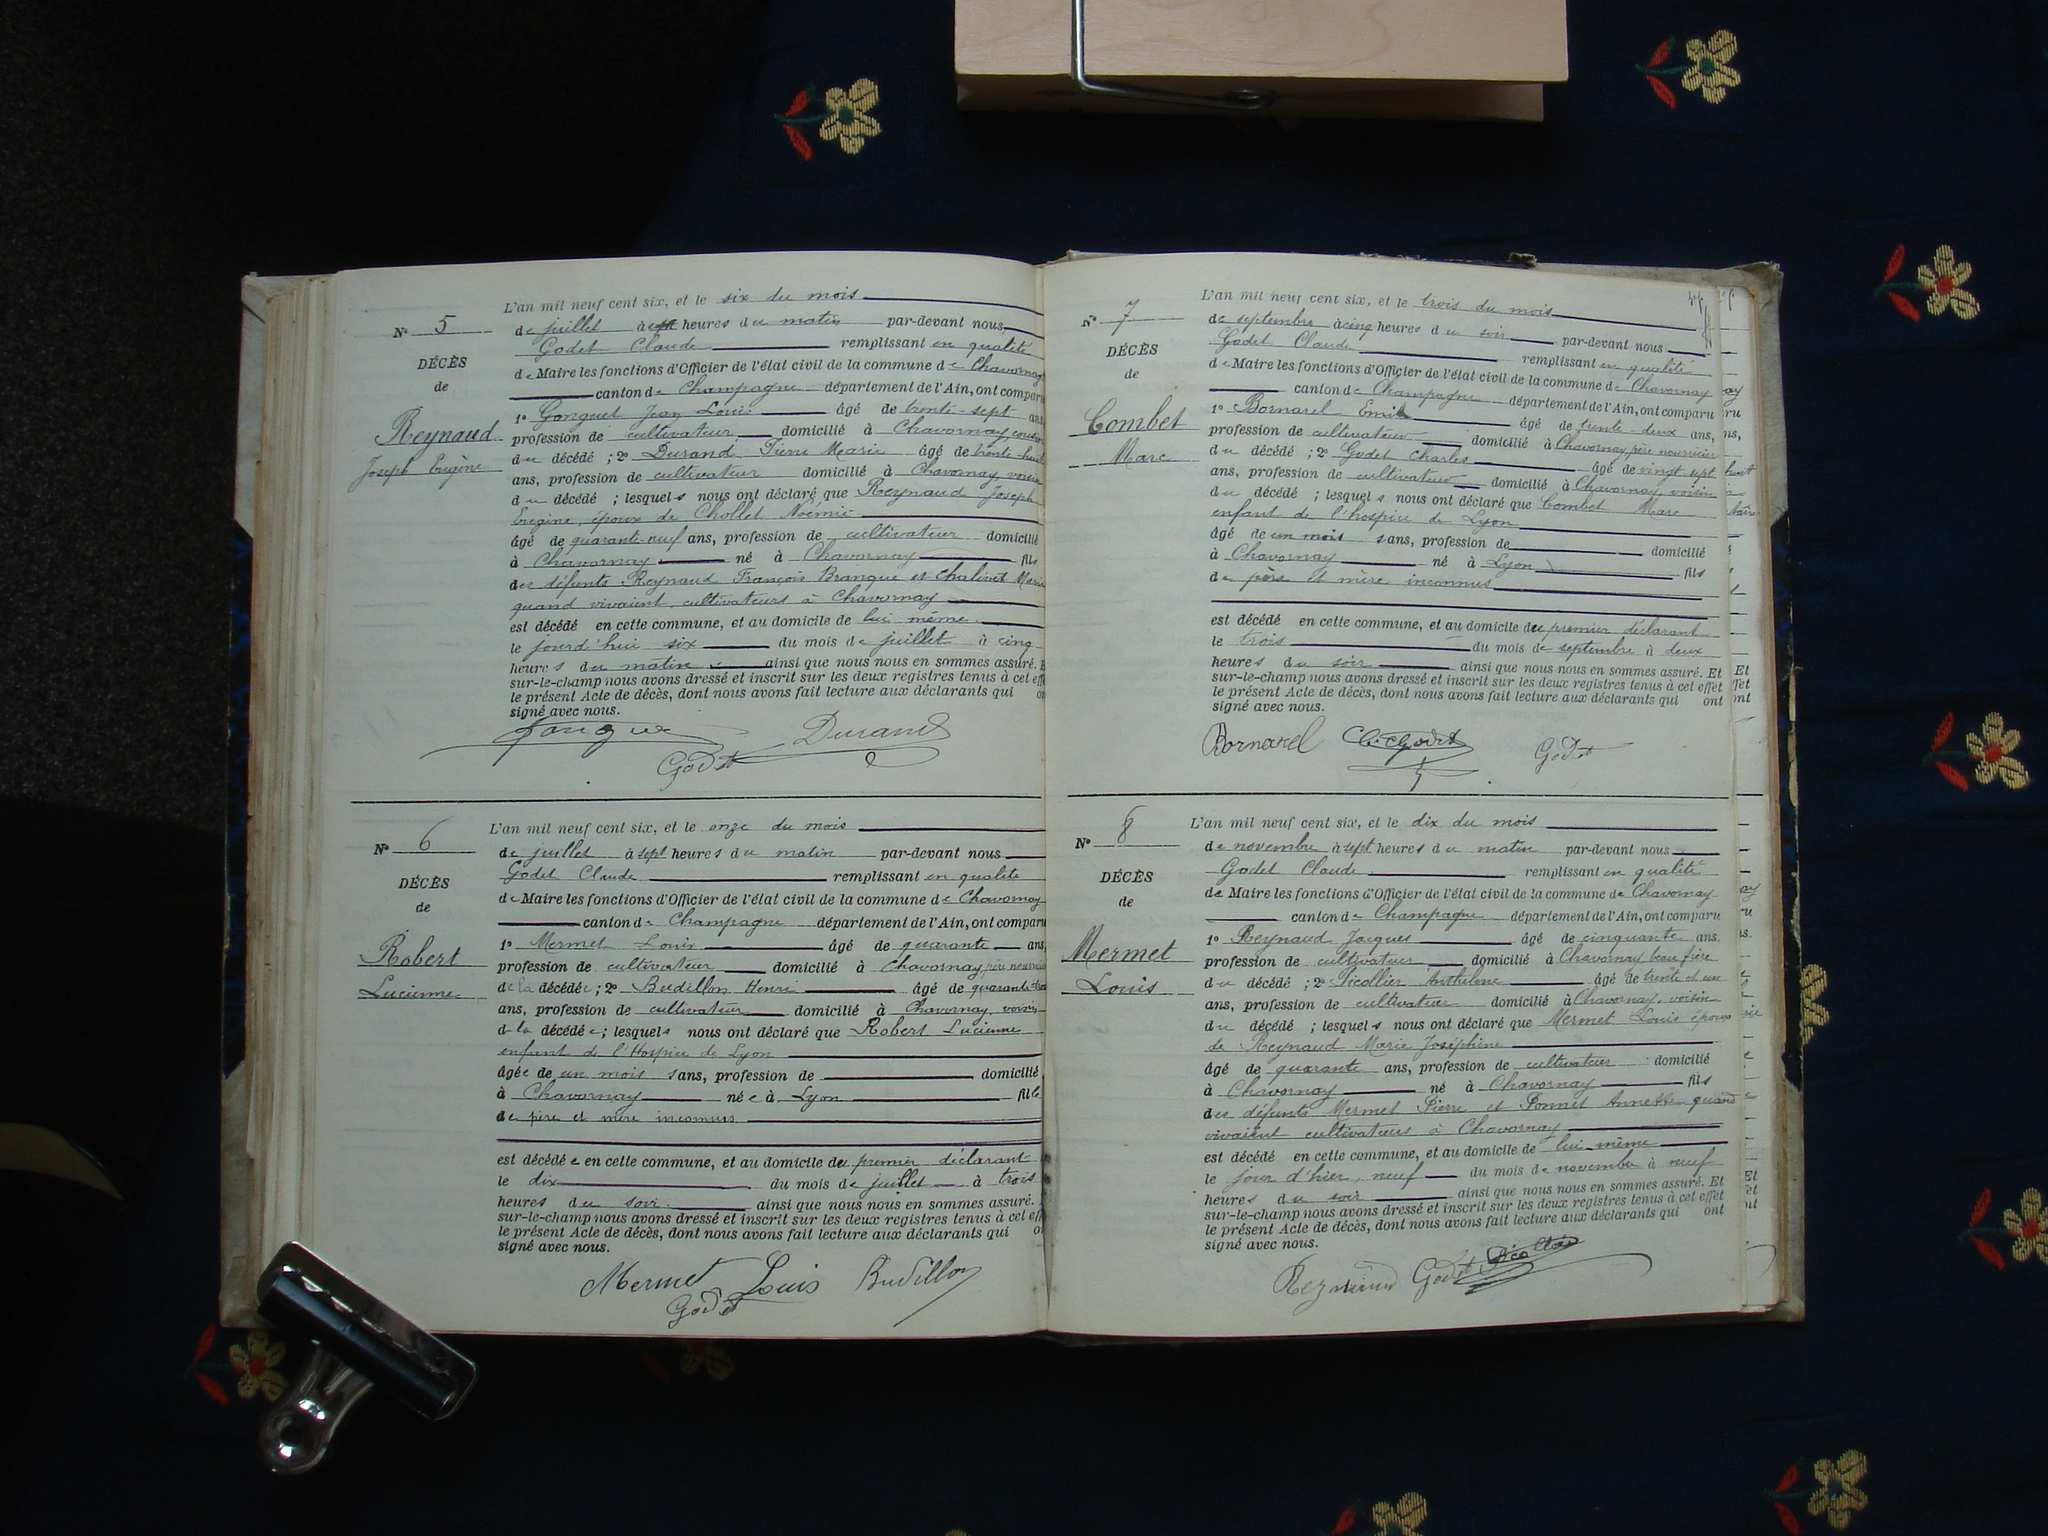 L'an mil neuf cent six, et le six du mois
N° 5
de juillet à sept heures du matin par-devant nous
Godet Claude remplissant en qualité
DÉCÈS
de Maire les fonctions d'Officier de l'état civil de la commune de Chavornay
de
canton de Champagne département de l'Ain, ont comparu
1° Gonguet Jean Louis âgé de trente-sept ans,
Reynaud
profession de cultivateur domicilié à Chavornay, cousin
Joseph Eugène
du décédé ; 2° Durand Pierre Marie âgé de trente-huit
ans, profession de cultivateur domicilié à Chavornay, voisin
du décédé ; lesquels nous ont déclaré que Reynaud Joseph
Eugène, époux de Chollet Noémie
âgé de quarante-neuf ans, profession de cultivateur domicilié
à Chavornay né à Chavornay fils
des défunts Reynaud François Brangue et Chalivet Marie
quand vivaient, cultivateurs à Chavornay
est décédé en cette commune, et au domicile de lui même
le jourd'hui six du mois de juillet à cinq
heures du matin ainsi que nous nous en sommes assuré. E
sur-le-champ nous avons dressé et inscrit sur les deux registres tenus à cet effe
le présent Acte de décès, dont nous avons fait lecture aux déclarants qui o
signé avec nous.
Durand
Godet
L'an mil neuf cent six, et le onze du mois
N° 6
de juillet à sept heures du matin par-devant nous
Godet Claude remplissant en qualité
DÉCÈS
de Maire les fonctions d'Officier de l'état civil de la commune de Chavornay
de
canton de Champagne département de l'Ain, ont comparu
1° Mermet Louis âgé de quarante ans,
Robert
profession de cultivateur domicilié à Chavornay, père nourricier
Lucienne
de la décédée ; 2° Budillon Henri âgé de quarante
ans, profession de cultivateur domicilié à Chavornay, voisin
de la décédée ; lesquels nous ont déclaré que Robert Lucienne
enfant de l'Hospice de Lyon
âgée de un mois sans, profession de domicilié
à Chavornay née à Lyon fille
de père et mère inconnus
est décédée en cette commune, et au domicile du premier déclarant
le dix du mois de juillet à trois
heures du soir ainsi que nous nous en sommes assuré.
sur-le-champ nous avons dressé et inscrit sur les deux registres tenus à cet eff
le présent Acte de décès, dont nous avons fait lecture aux déclarants qui o
signé avec nous.
Mermet Louis Budillon
Godet
L'an mil neuf cent six, et le trois du mois
N° 7
de septembre à cinq heures du soir par-devant nous
Godet Claude remplissant en qualité
DÉCÈS
de Maire les fonctions d'Officier de l'état civil de la commune de Chavornay
de
canton de Champagne département de l'Ain, ont comparu
1° Bornarel Emile âgé de trente-deux ans,
Combet
profession de cultivateur domicilié à Chavornay, père nourricier
Marc
du décédé ; 2° Godet Charles âgé de vingt-sept
ans, profession de cultivateur domicilié à Chavornay, voisin
du décédé ; lesquels nous ont déclaré que Combet Marc
enfant de l'hospice de Lyon
âgé de un mois sans, profession de domicilié
à Chavornay né à Lyon fils
de père et mère inconnus
est décédé en cette commune, et au domicile du premier déclarant
le trois du mois de septembre à deux
heures du soir ainsi que nous nous en sommes assuré. Et
sur-le-champ nous avons dressé et inscrit sur les deux registres tenus à cet effet
le présent Acte de décès, dont nous avons fait lecture aux déclarants qui ont
signé avec nous.
Bornarel Ch. Godet Godet
L'an mil neuf cent six, et le dix du mois
N° 8
de novembre à sept heures du matin par-devant nous
Godet Claude remplissant en qualité
DÉCÈS
de Maire les fonctions d'Officier de l'état civil de la commune de Chavornay
de
canton de Champagne département de l'Ain, ont comparu
1° Reynaud Jacques âgé de cinquante ans.
Mermet
profession de cultivateur domicilié à Chavornay beau frère
Louis
du décédé ; 2° Picollier Anthelme âgé de trente et un
ans, profession de cultivateur domicilié à Chavornay, voisin
du décédé ; lesquels nous ont déclaré que Mermet Louis époux
de Reynaud Marie Joséphine
âgé de quarante ans, profession de cultivateur domicilié
à Chavornay né à Chavornay fils
des défunts Mermet Pierre et Ponnet Annette quand
vivaient cultivateurs à Chavornay
est décédé en cette commune, et au domicile de lui même
le jour d'hier, neuf du mois de novembre à neuf
heures du soir ainsi que nous nous en sommes assuré. Et
sur-le-champ nous avons dressé et inscrit sur les deux registres tenus à cet effet
le présent Acte de décès, dont nous avons fait lecture aux déclarants qui ont
signé avec nous.
Reynaud Godet